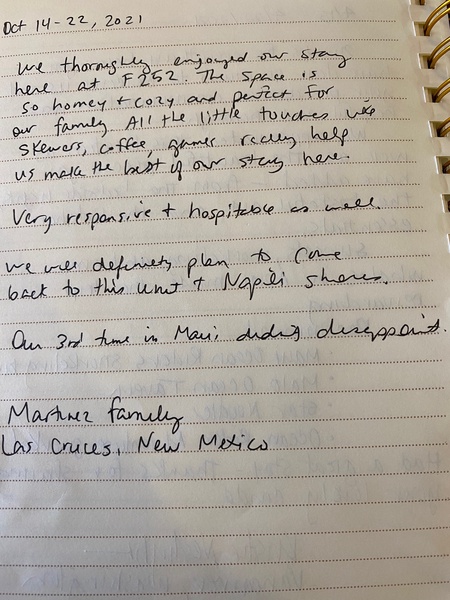 Oct 14-22, 2021
We thoroughly enjoyed our stay
here at F252. The space is
so homey + cozy and perfect for
our family. All the little touches like
skewers, coffee, games really help
us make the best of our stay here.
Very responsive + hospitable as well.
We will definitely plan to come
back to this unit + Napili shores.
Our 3rd time in Maui, didn't disappoint.
Martinez family
Las Cruces, New Mexico